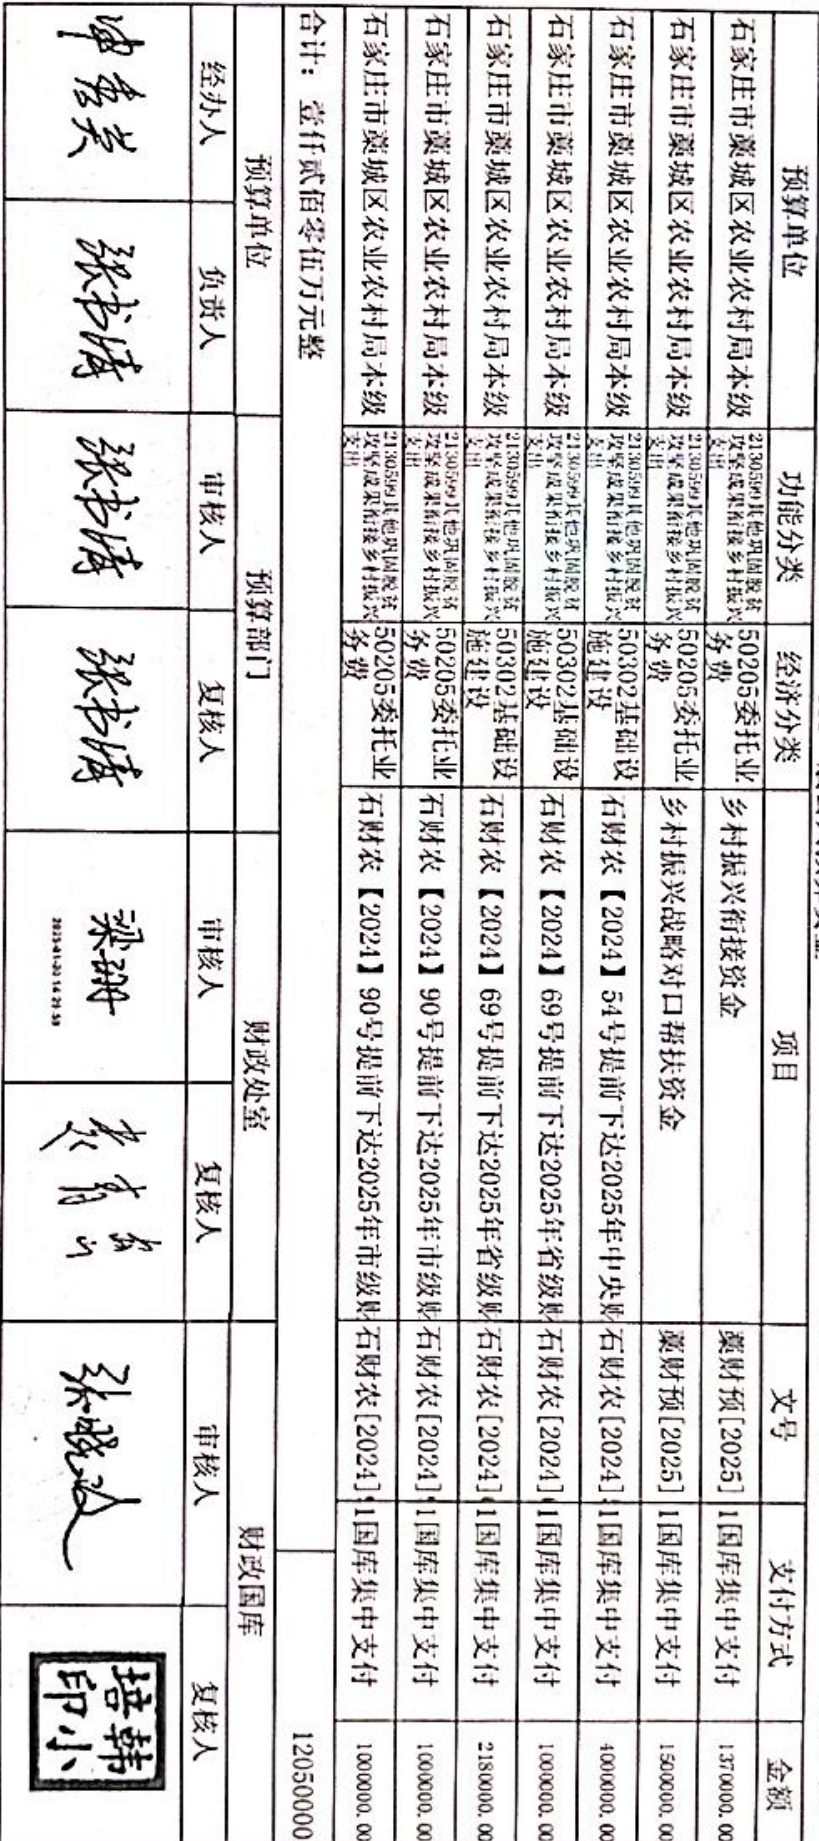 预算单位 功能分类 经济分类 项目 文号 支付方式 金额
石家庄市藁城区农业农村局本级 2130599其他巩固脱贫攻坚成果衔接乡村振兴支出 50205委托业务费 乡村振兴衔接资金 藁财预[2025] 1国库集中支付 1370000.00
石家庄市藁城区农业农村局本级 2130599其他巩固脱贫攻坚成果衔接乡村振兴支出 50205委托业务费 乡村振兴战略对口帮扶资金 藁财预[2025] 1国库集中支付 1500000.00
石家庄市藁城区农业农村局本级 2130599其他巩固脱贫攻坚成果衔接乡村振兴支出 50302基础设施建设 石财农【2024】54号提前下达2025年中央财 石财农[2024] 1国库集中支付 4000000.00
石家庄市藁城区农业农村局本级 2130599其他巩固脱贫攻坚成果衔接乡村振兴支出 50302基础设施建设 石财农【2024】69号提前下达2025年省级财 石财农[2024] 1国库集中支付 1000000.00
石家庄市藁城区农业农村局本级 2130599其他巩固脱贫攻坚成果衔接乡村振兴支出 50302基础设施建设 石财农【2024】69号提前下达2025年省级财 石财农[2024] 1国库集中支付 2180000.00
石家庄市藁城区农业农村局本级 2130599其他巩固脱贫攻坚成果衔接乡村振兴支出 50205委托业务费 石财农【2024】90号提前下达2025年市级财 石财农[2024] 1国库集中支付 1000000.00
石家庄市藁城区农业农村局本级 2130599其他巩固脱贫攻坚成果衔接乡村振兴支出 50205委托业务费 石财农【2024】90号提前下达2025年市级财 石财农[2024] 1国库集中支付 1000000.00
合计：壹仟贰佰零伍万元整 12050000
预算单位 预算部门 财政处室 财政国库
经办人 负责人 审核人 复核人 审核人 复核人 审核人 复核人
张书涛 张书涛 张书涛 梁珊 韩小培印